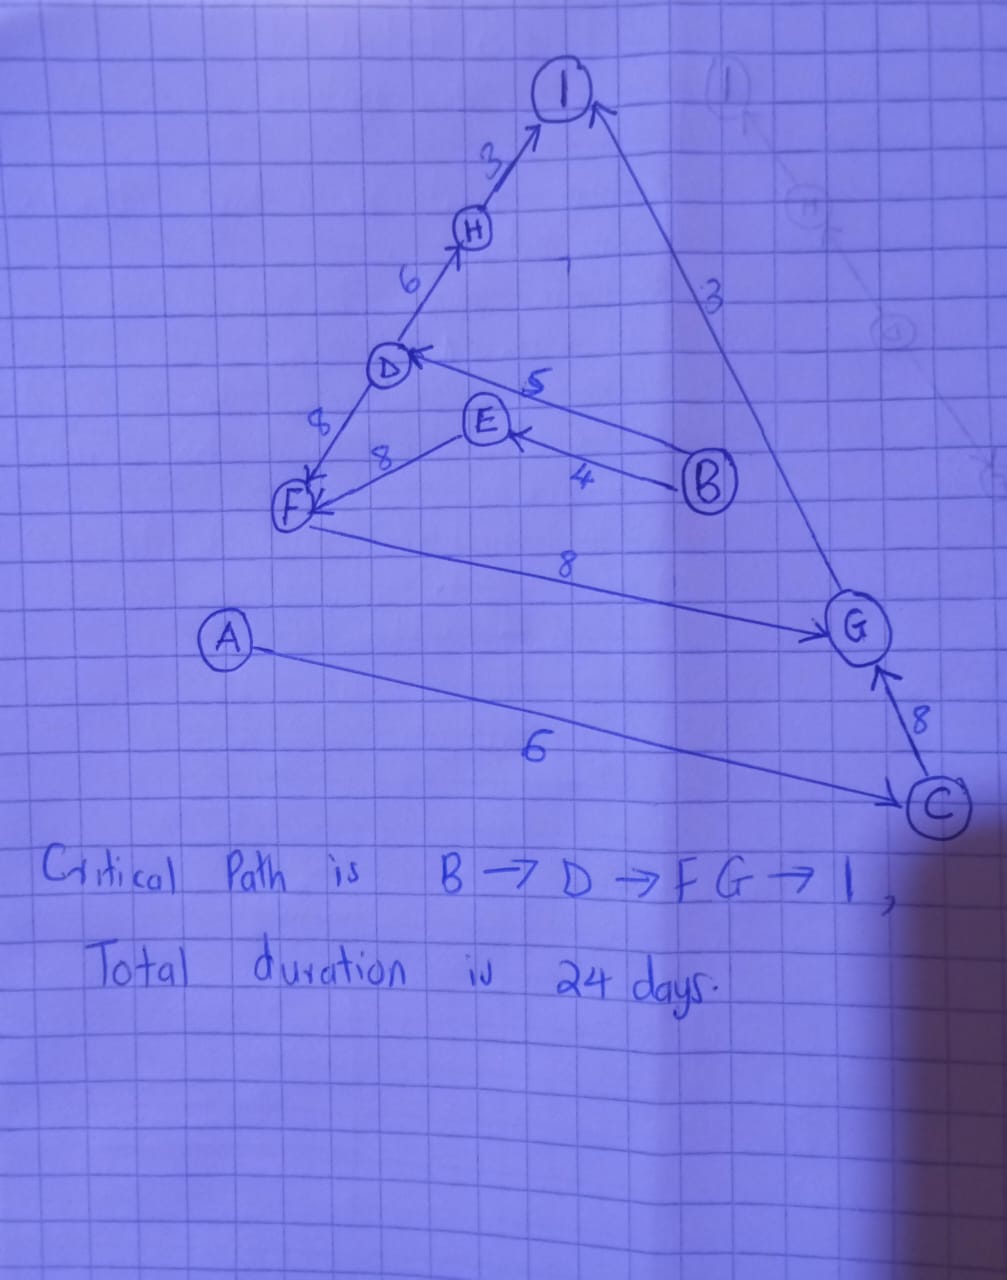 I
3
H
6
3
D
5
E
8
8
4
B
F
8
A
G
8
6
C
Critical Path is B → D → F G → I,
Total duration is 24 days.